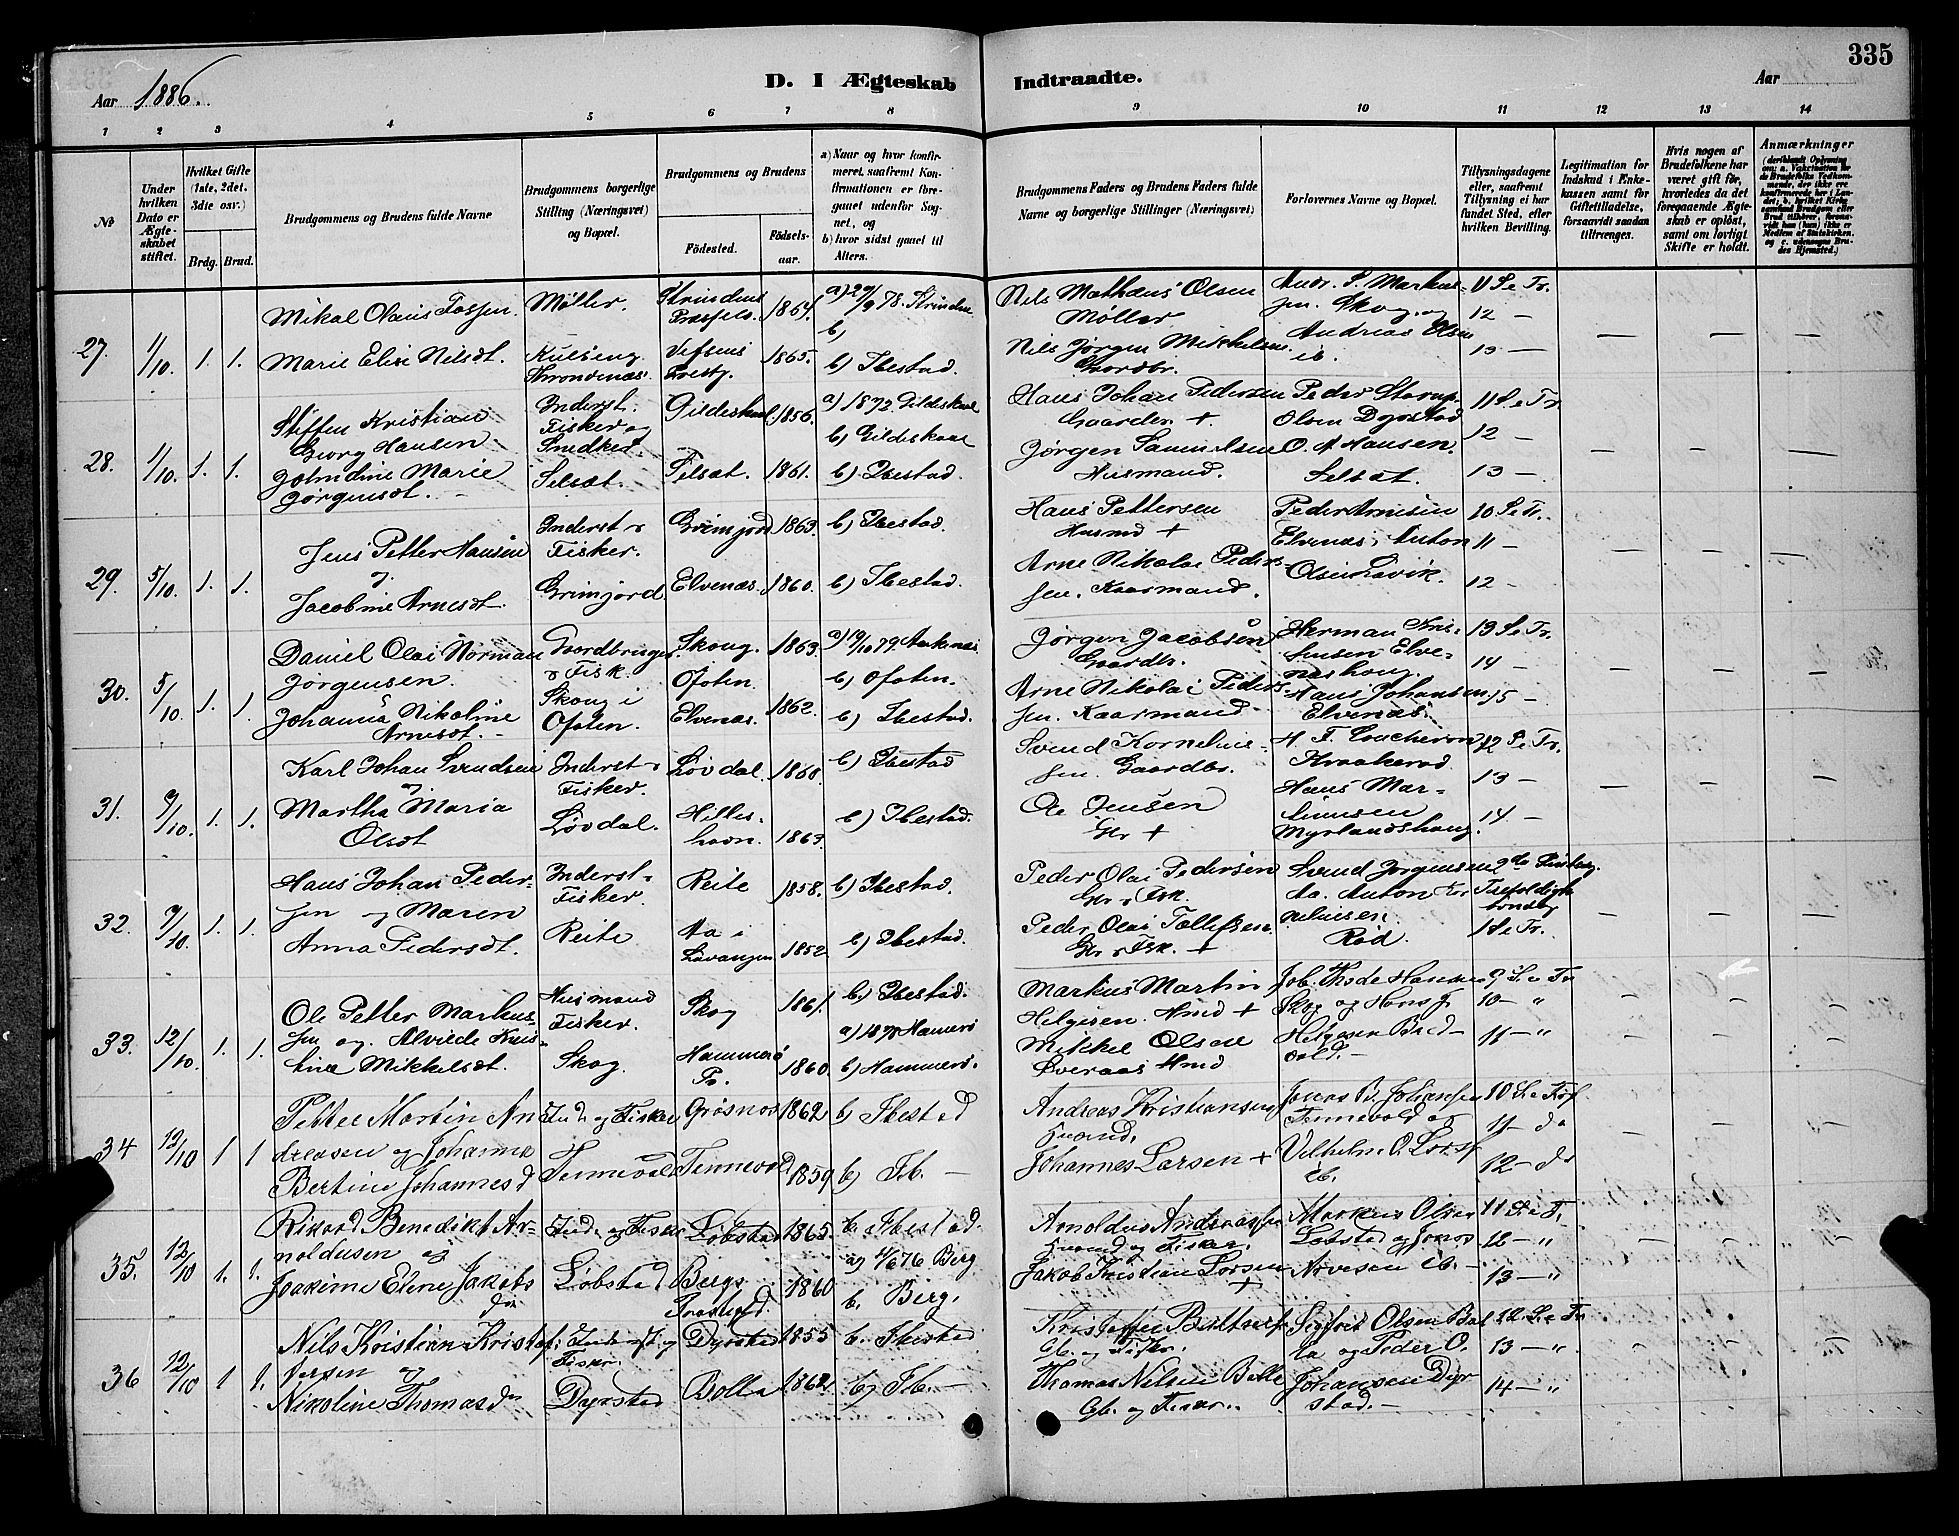 335
Aar 1886.
D. I Ægteskab Indtraadte.
Aar
1 2 3 4 5 6 7 8 9 10 11 12 13 14
№
Under hvilken Dato er Ægteskabet stiftet.
Hvilket Gifte (1ste, 2det, 3die osv.)
Brdg. Brud.
Brudgommens og Brudens fulde Navne
Brudgommens borgerlige Stilling (Næringsvei) og Bopæl.
Brudgommens og Brudens
Fødested. Fødselsaar.
a) Naar og hvor konfirmeret, saafremt Konfirmationen er foregaaet udenfor Sognet, og
b) hvor sidst gaaet til Alters.
Brudgommens Faders og Brudens Faders fulde Navne og borgerlige Stillinger (Næringsvei)
Forlovernes Navne og Bopæl.
Tillysningsdagene eller, saafremt Tillysning ei har fundet Sted, efter hvilken Bevilling.
Legitimation for Indskud i Enkekassen samt for Giftetilladelse, forsaavidt saadan tiltrænges.
Hvis nogen af Brudefolkene har været gift før, hvorledes da det foregaaende Ægteskab er opløst, samt om lovligt Skifte er holdt.
Anmærkninger
27. 1/10. 1. 1.
Mikal Olaus Fossen. Møller. Strindens Præstegj. 1864. a) 29/9 78. Strinden b)
Marie Elise Nilsdt. Kulseng Throndenæs. Vefsens Prestg. 1865. b) Ibestad.
Nils Mathæus Olsen Møller
Nils Jørgen Mikkelsen Gaardbr.
Andr. P. Markussen. Skog, og Andreas Olsen ib.
11 S. e Tr.
12 —
13 —
28. 1/10. 1. 1.
Steffen Kristian Georg Hansen Inderst. Fisker og Snedker. Gildeskaal 1856. a) 1872 Gildeskaal b) Gildeskaal
Johndine Marie Jørgensdt. Selsæt. Selsæt. 1861. b) Ibestad.
Hans Johan Pedersen Gaardbr. +
Jørgen Samuelsen Husmand.
Peder Olsen Dyrstad
O. A Hansen. Selsæt.
11 S. e Tr.
12 —
13 —
29. 5/10. 1. 1.
Jens Petter Hansen Inderst & Fisker. Grimjord 1863. b) Ibestad.
og
Jacobine Arnesdt. Grimjord Elvenæs. 1860. b) Ibestad.
Hans Pettersen Husmd +
Arne Nikolai Pedersen. Kaarmand.
Peder Arnesen Elvenæs, Anton Olsen
10 S. e Tr.
11 —
12 —
30. 5/10. 1. 1.
Daniel Olai Norman Jørgensen. Gaardbruger & Fisk. Skoug. Ofoten 1863. a) 19/10 79. Ankenæs b) Ofoten.
Johanna Nikoline Arnesdt. Skoug i Ofoten. Elvenæs. 1862. b) Ibestad.
Jørgen Jacobsen Gaardbr.
Arne Nikolai Pedersen. Kaarmand
Herman Jensen Elvenæshoug
Hans Johansen Elvenæs.
13 S. e Tr.
14 —
15 —
31. 9/10. 1. 1.
Karl Johan Svendsen Inderst & Fisker. Løvdal. 1860. b) Ibestad
og
Martha Maria Olsdt Løvdal. Hilleshavn. 1863. b) Ibestad.
Svend Korneliussen. Gaardbr.
Ole Jensen Gbr +
H. F. Kraakerød
Hans Martinusen Myrlandshaug.
12 S. e Tr.
13 —
14 —
32. 9/10. 1. 1.
Hans Johan Pedersen og Maren Inderst & Fisker. Reite 1858. b) Ibestad.
Anna Pedersdt. Reite Aa i Lavangen 1852 b) Ibestad.
Peder Olai Pedersen Gbr & Fsk.
Peder Olai Tollefsen. Gbr & Fsk. +
Svend Jorgensen Aa. Anton Korneliusen. Rød.
2den Pintsedag.
Trefoldigh søndag
1 S. e Tr.
33. 12/10. 1. 1.
Ole Petter Markussen og Alvilde Kristine Mikkelsdt. Husmand Fisker. Skog 1861. b) Ibestad.
Skog. Hammerø Pr. 1860 a) 1878 Hamerø b) Hammerø.
Markus Martin Helgesen. Hmd +
Mikkel Olsen Sveraas Hmd
Job. Thode Hansen Skog og Hans J. Helgesen Bredvold.
9 S. e Tr
10 — "
11 — "
34 12/10 1 1
Petter Martin Andreasen og Johanna Bertine Johannesd Ind. og Fisker Grøsnes 1862 b) Ibestad
Tennevold Tennevold 1859 b) Ib. —
Andreas Kristiansen Husmd,
Johannes Larsen +
Jonas B. Johansen Tennevold og Vilhelm O. Lars ib.
10 S. e Tref
11 — do
12 — do
35. 12/10 1. 1.
Rikard Benedikt Arnoldusen og Ind. og Fisker Løbstad 1865. b. Ibestad.
Joakime Elene Jakobsdtr Løbstad Bergs Præstegd. 1860 a) 4/6 76 Berg b. Berg.
Arnoldus Andreassen Husmd og Fisker.
Jakob Kristian Larsen +
Markus Olsen Løbstad og Jonas Arnesen ib. —
11 S. e Tr
12 — "
13 — "
36 12/10 1 1.
Nils Kristian Kristoffersen og Inderst. og Fisker. Dyrstad 1855 b. Ibestad
Nikoline Thomasdr Dyrstad Bolla 1862 b) Ib. —
Kristoffer Gb. og Fisker.
Thomas Nilsen Bolle Gb. og Fisker.
Sigfrit Olsen Bolla og Peder O. Johansen Dyrstad. —
12 S. e Tr
13 — "
14 — "